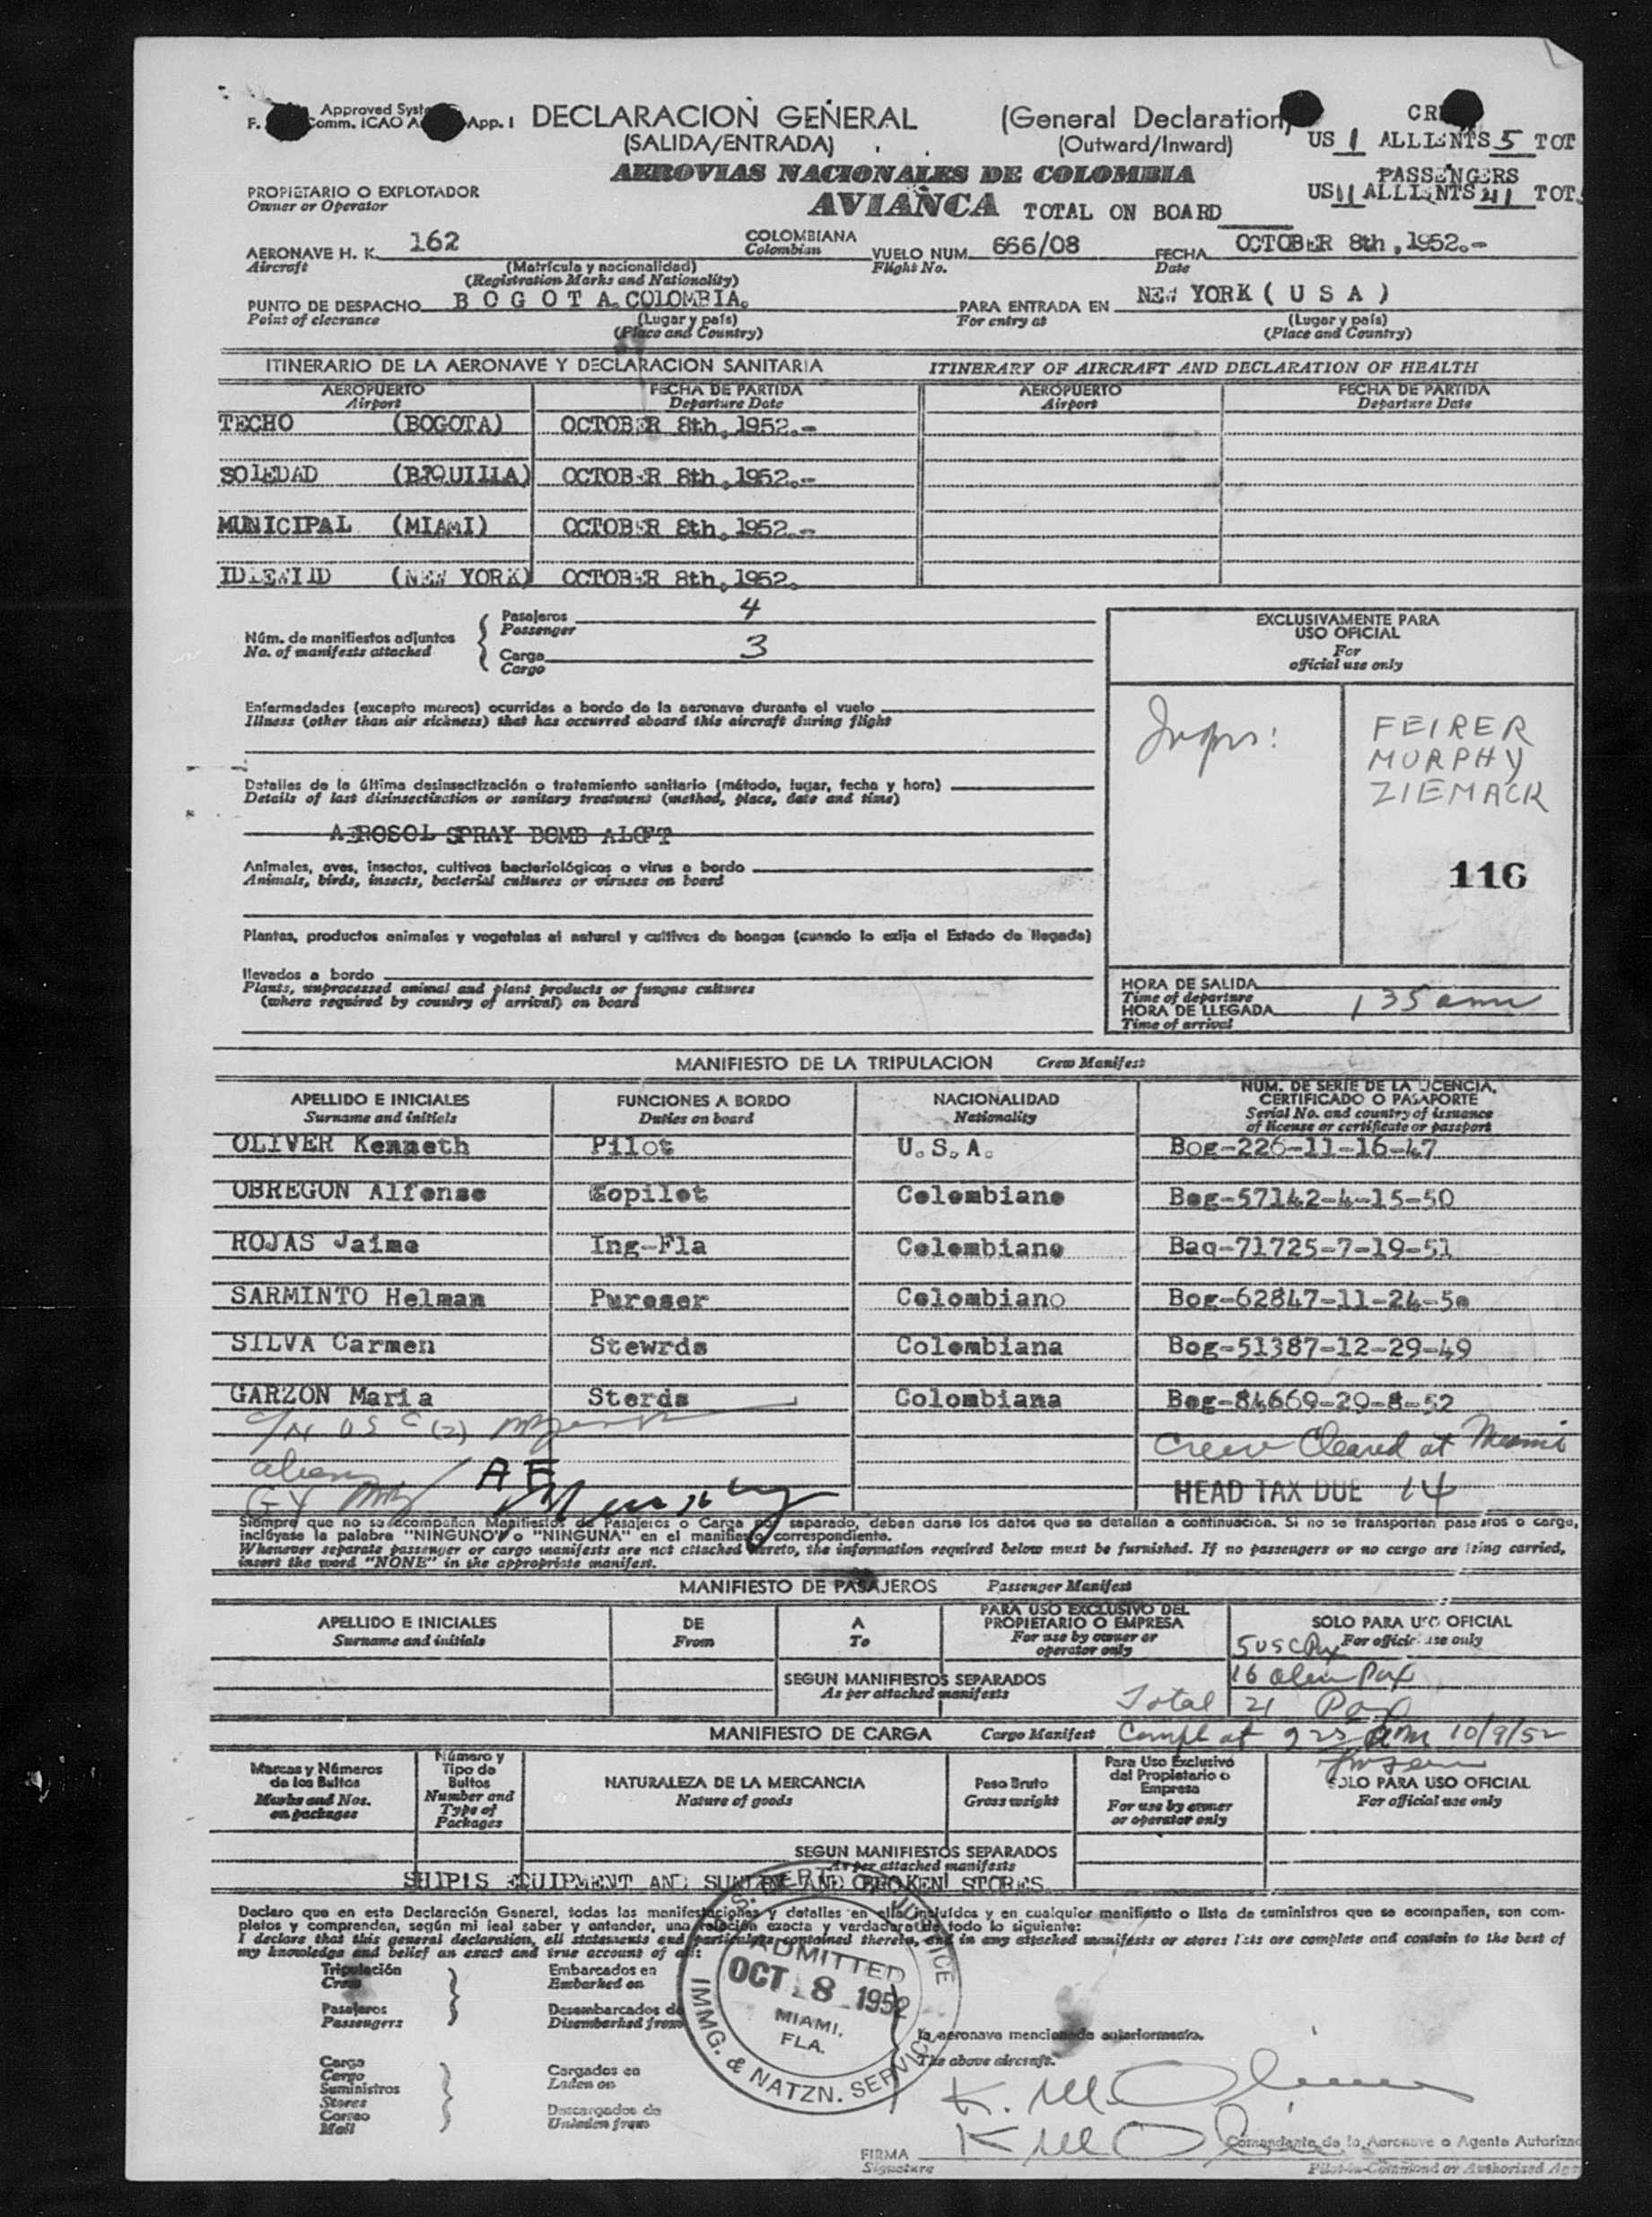 Approved Syst
F. Comm. ICAO A App. I
DECLARACION GENERAL (General Declaration)
(SALIDA/ENTRADA) (Outward/Inward)
CRE
US 1 ALLIENTS 5 TOT
AEROVIAS NACIONALES DE COLOMBIA
PASSENGERS
US 11 ALLIENTS 41 TOT.
PROPIETARIO O EXPLOTADOR
Owner or Operator
AVIANCA TOTAL ON BOARD
AERONAVE H. K. 162 COLOMBIANA VUELO NUM. 666/08 FECHA OCTOBER 8th, 1952.-
Aircraft Colombian Flight No. Date
(Matrícula y nacionalidad)
(Registration Marks and Nationality)
PUNTO DE DESPACHO BOGOTA.COLOMBIA. PARA ENTRADA EN NEW YORK ( U S A )
Point of clearance (Lugar y país) For entry at (Lugar y país)
(Place and Country) (Place and Country)
ITINERARIO DE LA AERONAVE Y DECLARACION SANITARIA ITINERARY OF AIRCRAFT AND DECLARATION OF HEALTH
AEROPUERTO FECHA DE PARTIDA AEROPUERTO FECHA DE PARTIDA
Airport Departure Date Airport Departure Date
TECHO (BOGOTA) OCTOBER 8th, 1952.-
SOLEDAD (B/QUILLA) OCTOBER 8th, 1952.-
MUNICIPAL (MIAMI) OCTOBER 8th, 1952.-
IDLEWILD (NEW YORK) OCTOBER 8th, 1952.
Núm. de manifiestos adjuntos
No. of manifests attached
Pasajeros 4
Passenger
Carga 3
Cargo
EXCLUSIVAMENTE PARA
USO OFICIAL
For
official use only
Enfermedades (excepto mareos) ocurridas a bordo de la aeronave durante el vuelo
Illness (other than air sickness) that has occurred aboard this aircraft during flight
Insprs:
FEIRER
MURPHY
ZIEMACK
Detalles de la última desinsectización o tratamiento sanitario (método, lugar, fecha y hora)
Details of last disinsectization or sanitary treatment (method, place, date and time)
AEROSOL SPRAY BOMB ALOFT
116
Animales, aves, insectos, cultivos bacteriológicos o virus a bordo
Animals, birds, insects, bacterial cultures or viruses on board
Plantas, productos animales y vegetales al natural y cultivos de hongos (cuando lo exija el Estado de llegada)
llevados a bordo
Plants, unprocessed animal and plant products or fungus cultures
(where required by country of arrival) on board
HORA DE SALIDA
Time of departure
HORA DE LLEGADA 1 35 am
Time of arrival
MANIFIESTO DE LA TRIPULACION Crew Manifest
APELLIDO E INICIALES FUNCIONES A BORDO NACIONALIDAD NUM. DE SERIE DE LA LICENCIA,
CERTIFICADO O PASAPORTE
Surname and initials Duties on board Nationality Serial No. and country of issuance
of license or certificate or passport
OLIVER Kenneth Pilot U.S.A. Bog-226-11-16-47
OBREGON Alfonso Copilot Colombiano Bog-57142-4-15-50
ROJAS Jaime Ing-Fla Colombiano Baq-71725-7-19-51
SARMINTO Helman Pureser Colombiano Bog-62847-11-24-50
SILVA Carmen Stewrds Colombiana Bog-51387-12-29-49
GARZON Maria Sterds Colombiana Bog-84669-29-8-52
Crew Cleared at Miami
AE
Murphy
HEAD TAX DUE 14
Siempre que no se acompañen Manifiestos de Pasajeros o Carga por separado, deben darse los datos que se detallan a continuación. Si no se transportan pasajeros o carga,
inclúyase la palabra "NINGUNO" o "NINGUNA" en el manifiesto correspondiente.
Whenever separate passenger or cargo manifests are not attached hereto, the information required below must be furnished. If no passengers or no cargo are being carried,
insert the word "NONE" in the appropriate manifest.
MANIFIESTO DE PASAJEROS Passenger Manifest
APELLIDO E INICIALES DE A PARA USO EXCLUSIVO DEL
PROPIETARIO O EMPRESA SOLO PARA USO OFICIAL
Surname and initials From To For use by owner or
operator only For official use only
5 USC Pax
SEGUN MANIFIESTOS SEPARADOS 16 alien Pax
As per attached manifests Total 21 Pax
MANIFIESTO DE CARGA Cargo Manifest Compl at 2 25 AM 10/9/52
Marcas y Números
de los Bultos
Marks and Nos.
on packages
Número y
Tipo de
Bultos
Number and
Type of
Packages
NATURALEZA DE LA MERCANCIA
Nature of goods
Peso Bruto
Gross weight
Para Uso Exclusivo
del Propietario o
Empresa
For use by owner
or operator only
SOLO PARA USO OFICIAL
For official use only
SEGUN MANIFIESTOS SEPARADOS
As per attached manifests
SHIP'S EQUIPMENT AND SUNDRY AND BROKEN STORES
Declaro que en esta Declaración General, todas las manifestaciones y detalles en ella incluídos y en cualquier manifiesto o lista de suministros que se acompañen, son com-
pletos y comprenden, según mi leal saber y entender, una relación exacta y verdadera de todo lo siguiente:
I declare that this general declaration, all statements and particulars contained therein, and in any attached manifests or stores lists are complete and contain to the best of
my knowledge and belief an exact and true account of all:
Tripulación
Crew
Pasajeros
Passengers
Embarcados en
Embarked on
Desembarcados de
Disembarked from
U.S. DEPT. OF JUSTICE
ADMITTED
OCT 8 1952
MIAMI,
FLA.
IMMG. & NATZN. SERVICE
la aeronave mencionada anteriormente.
The above aircraft.
Carga
Cargo
Suministros
Stores
Correo
Mail
Cargados en
Laden on
Descargados de
Unladen from
K. M. Oliver
K M Oliver
FIRMA
Signature
Comandante de la Aeronave o Agente Autoriza
Pilot-in-Command or Authorized Ag